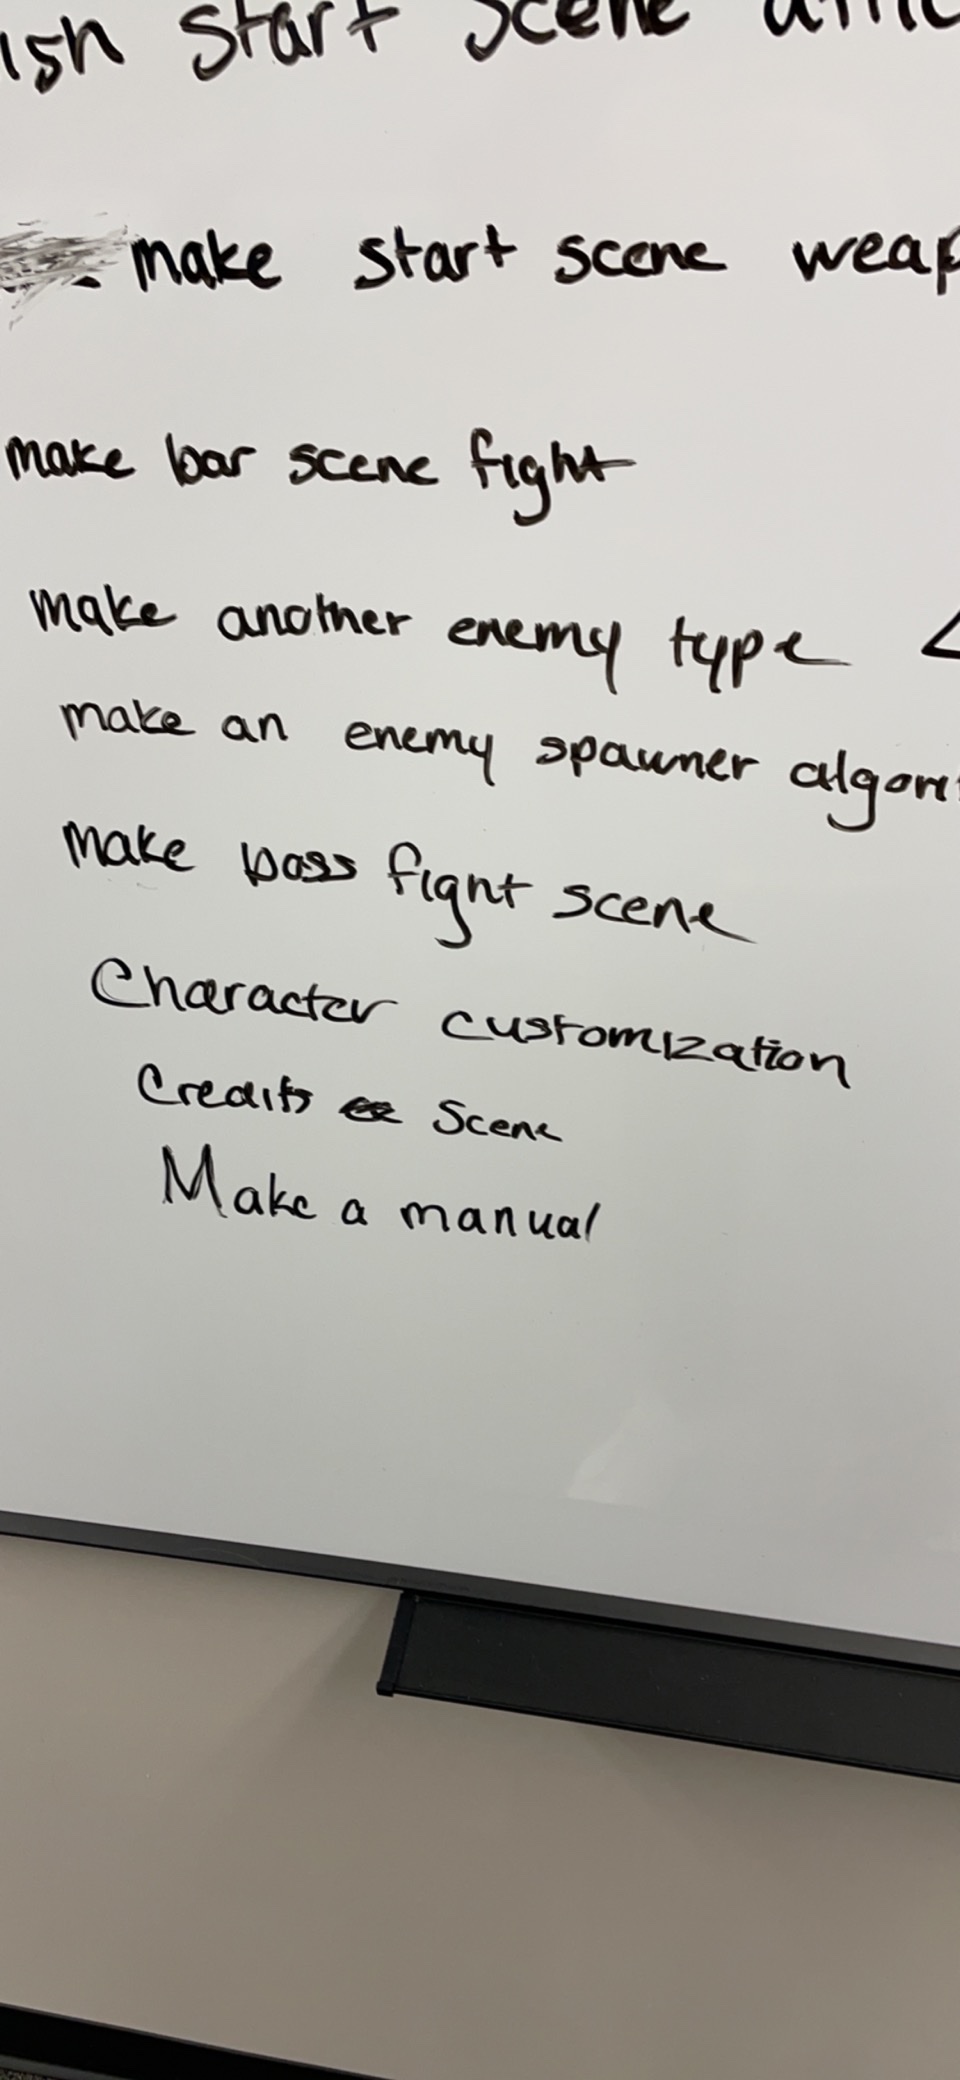 ish start scene
make start scene weap
make bar scene fight
make another enemy type <
make an enemy spawner algori
make boss fight scene
Character customization
Credits Scene
Make a manual